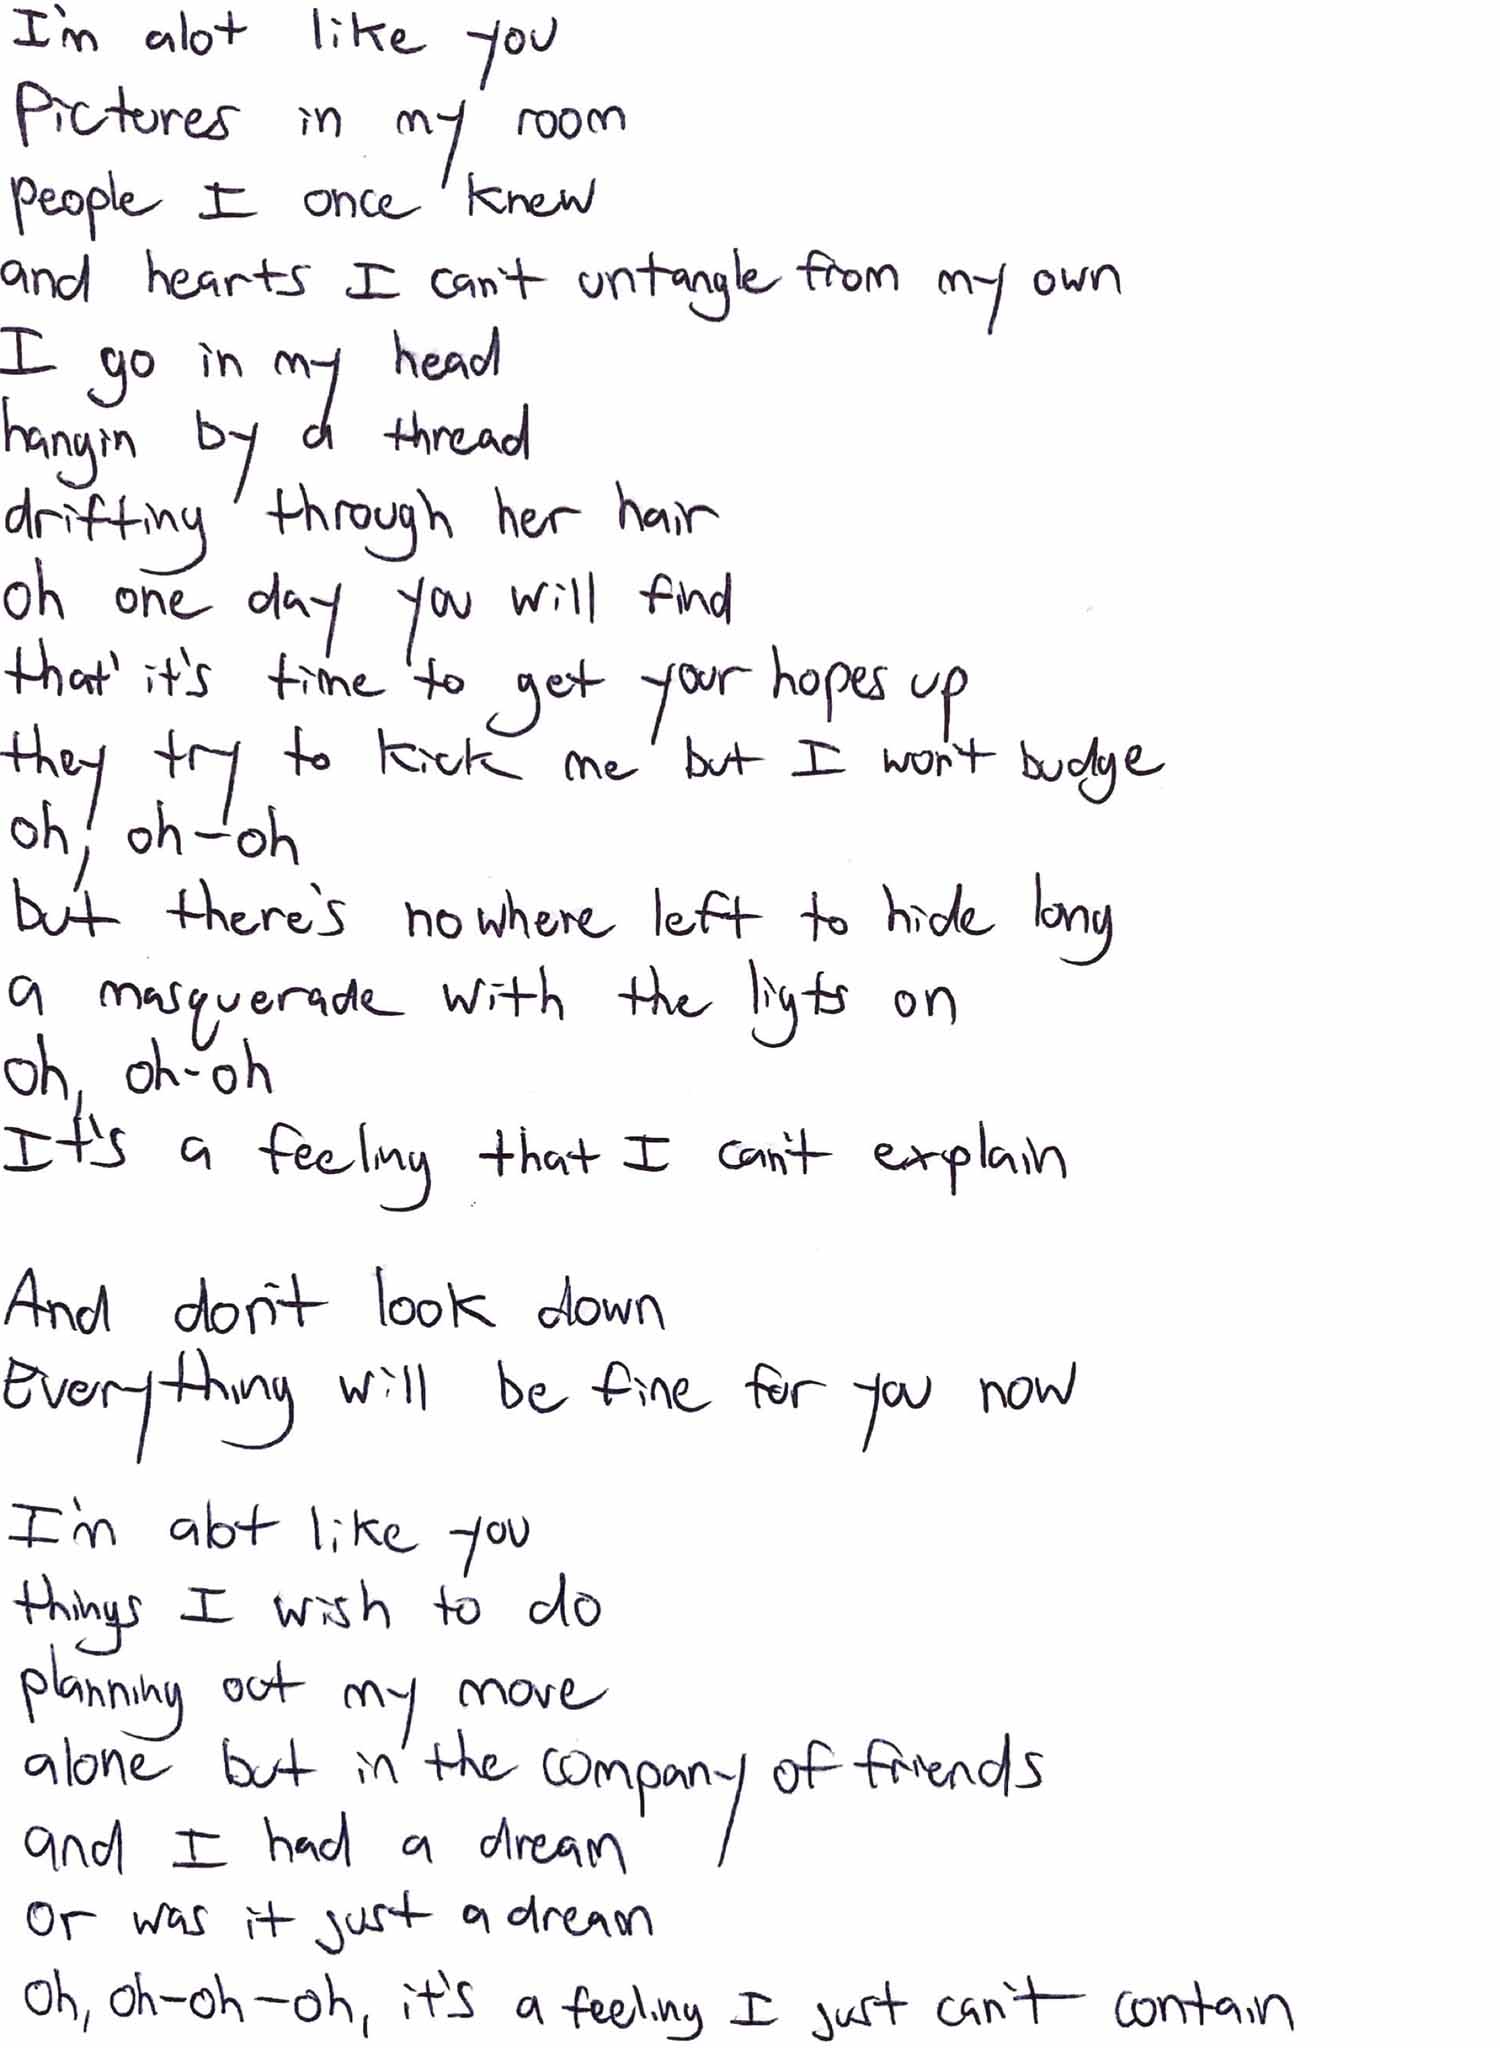 I'm alot like you
Pictures in my room
people I once knew
and hearts I can't untangle from my own
I go in my head
hangin by a thread
drifting through her hair
oh one day you will find
that it's time to get your hopes up
they try to kick me but I won't budge
oh, oh-oh
but there's nowhere left to hide long
a masquerade with the ligts on
oh, oh-oh
It's a feeling that I can't explain
And don't look down
Everything will be fine for you now
I'm alot like you
things I wish to do
planning out my move
alone but in the company of friends
and I had a dream
or was it just a dream
Oh, oh-oh-oh, it's a feeling I just can't contain